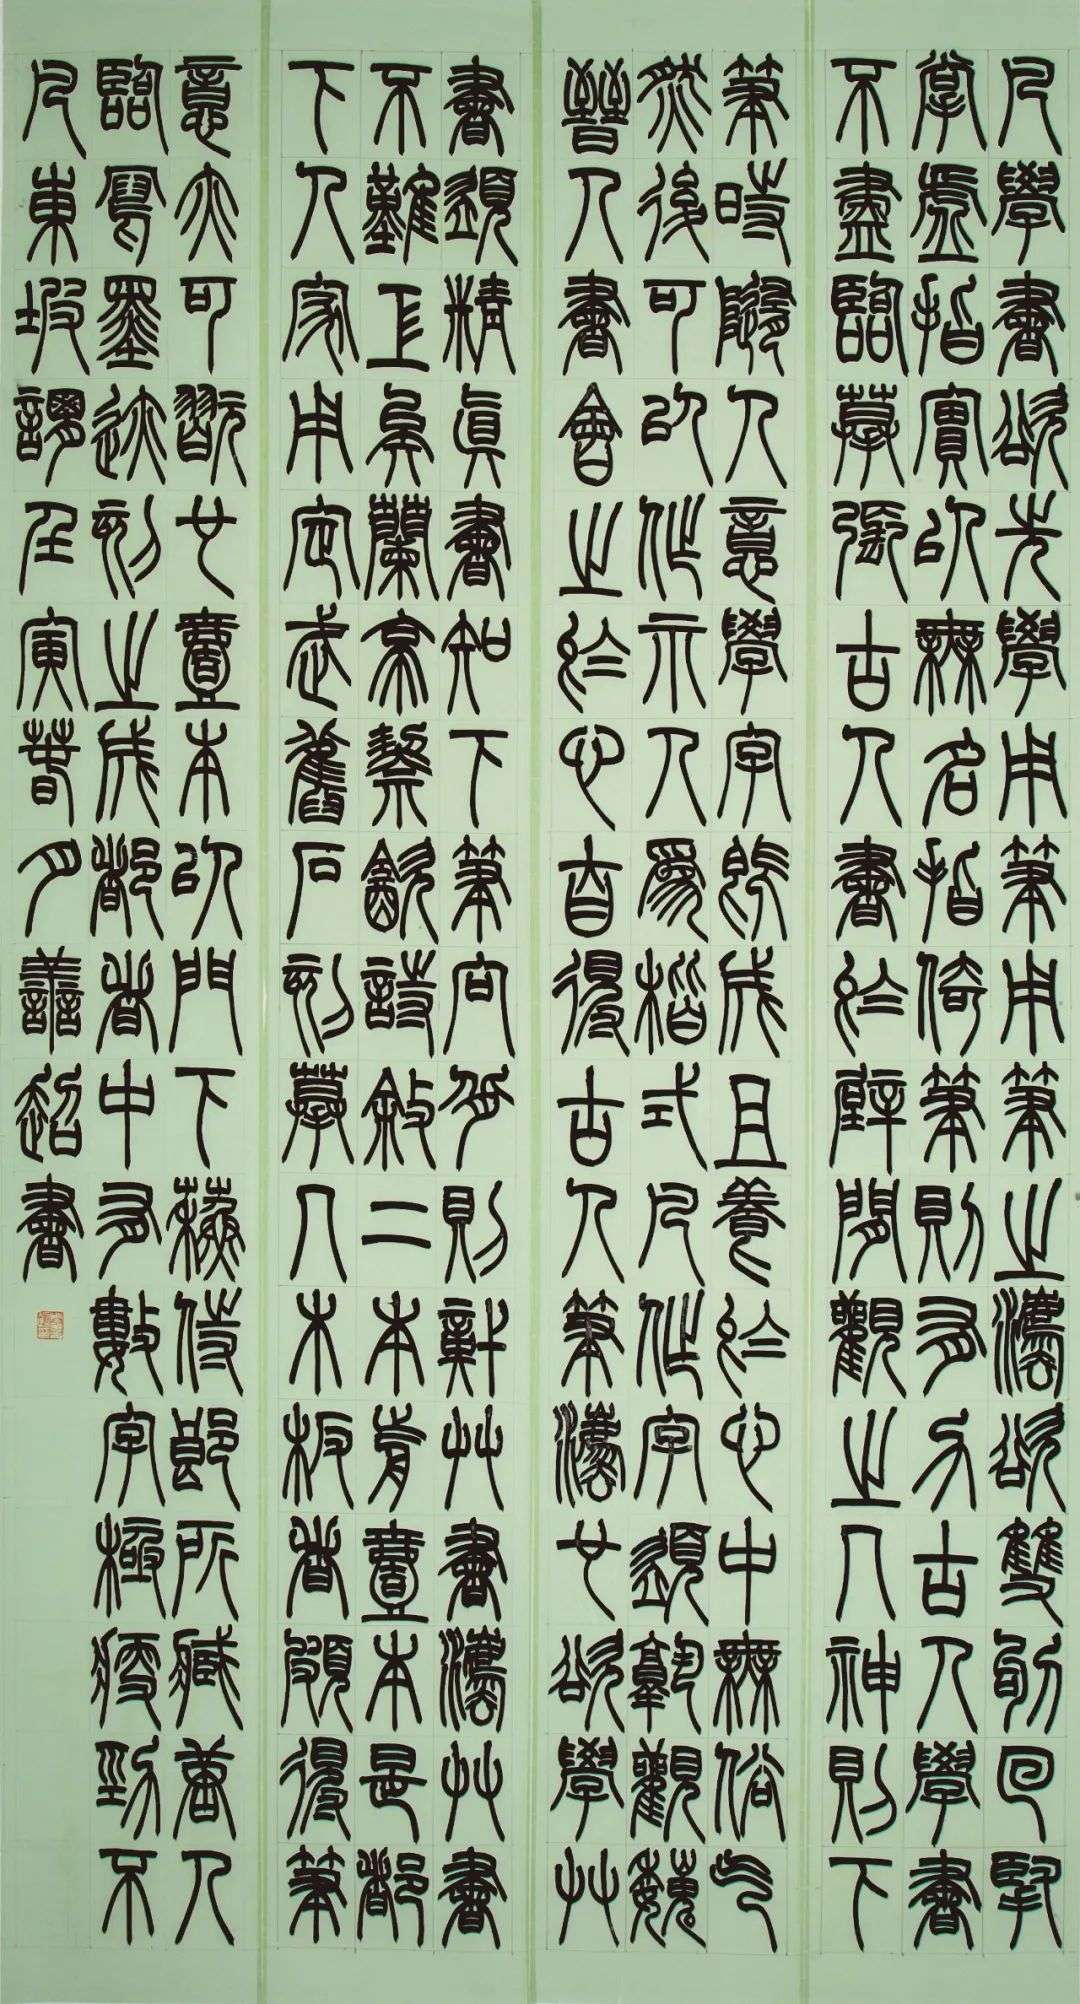 凡學書欲先學用筆用筆之灋欲雙鉤回腕
掌虛指實以無名指倚筆則有力古人學書
不盡臨摹張古人書於壁間觀之入神則下
筆時隨人意學字既成且養於心中無俗气
然後可以作示人為楷式凡作字須熟觀魏
晉人書會之於心自得古人筆灋也欲學艸
書須精真書知下筆向背則識艸書灋艸書
不難工矣蘭亭禊飲詩敘二本前壹本是都
下人家用定武舊石刻摹入木板者頗得筆
意亦可翫也壹本以門下蘇侍郎所藏唐人
臨寫墨迹刻之成都者中有數字極瘦勁不
凡東坡謂壬寅春月譱超書